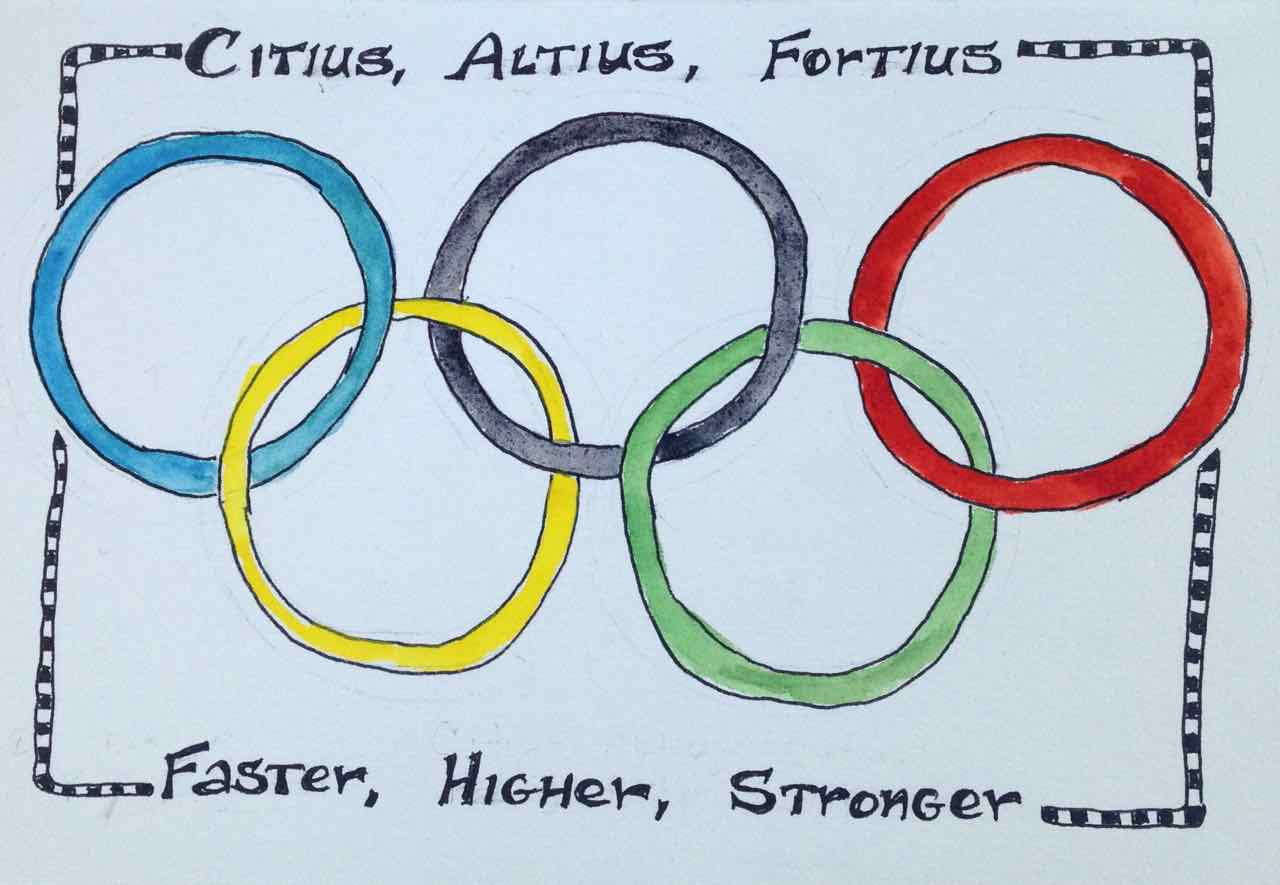 Citius, Altius, Fortius
Faster, Higher, Stronger